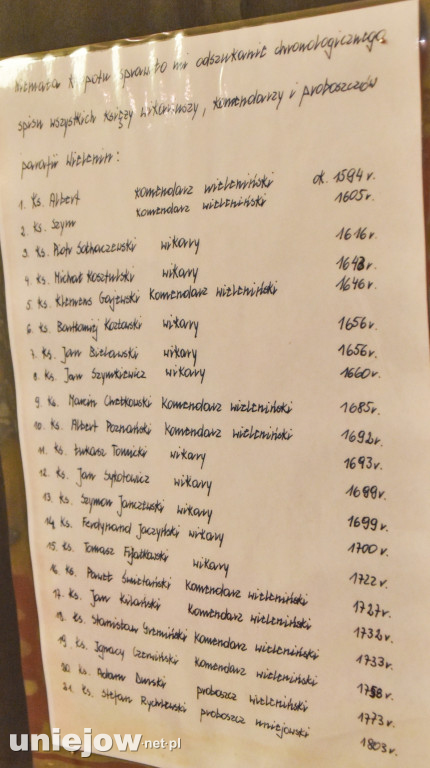 Niemało kłopotu sprawiło mi odszukanie chronologicznego
spisu wszystkich księży wikariuszy, komendarzy i proboszczów
parafii Wielenin:
1. Ks. Albert komendarz wieleniński ok. 1594 r.
2. Ks. Szym komendarz wieleniński 1605 r.
3. Ks. Piotr Sobaczewski wikary 1616 r.
4. Ks. Michał Kosztulski wikary 1643 r.
5. Ks. Klemens Gajewski Komendarz wieleniński 1646 r.
6. Ks. Bartłomiej Kozłowski wikary 1656 r.
7. Ks. Jan wikary 1656 r.
8. Ks. Jan Szymkiewicz wikary 1660 r.
9. Ks. Marcin Chełkowski Komendarz wieleniński 1685 r.
10. Ks. Albert Poznański Komendarz wieleniński 1692 r.
11. Ks. Łukasz Tomicki wikary 1693 r.
12. Ks. Jan wikary 1699 r.
13. Ks. Szymon Janczewski wikary 1699 r.
14. Ks. Ferdynand Jaczyński wikary 1700 r.
15. Ks. Tomasz Fijałkowski wikary 1722 r.
16. Ks. Paweł Komendarz wieleniński 1727 r.
17. Ks. Jan Kiliański Komendarz wieleniński 1732 r.
18. Ks. Stanisław Komendarz wieleniński 1733 r.
19. Ks. Ignacy Komendarz wieleniński 1758 r.
20. Ks. Adam proboszcz wieleniński 1773 r.
21. Ks. Stefan Rychlewski proboszcz mniejowski 1803 r.
uniejow.net.pl